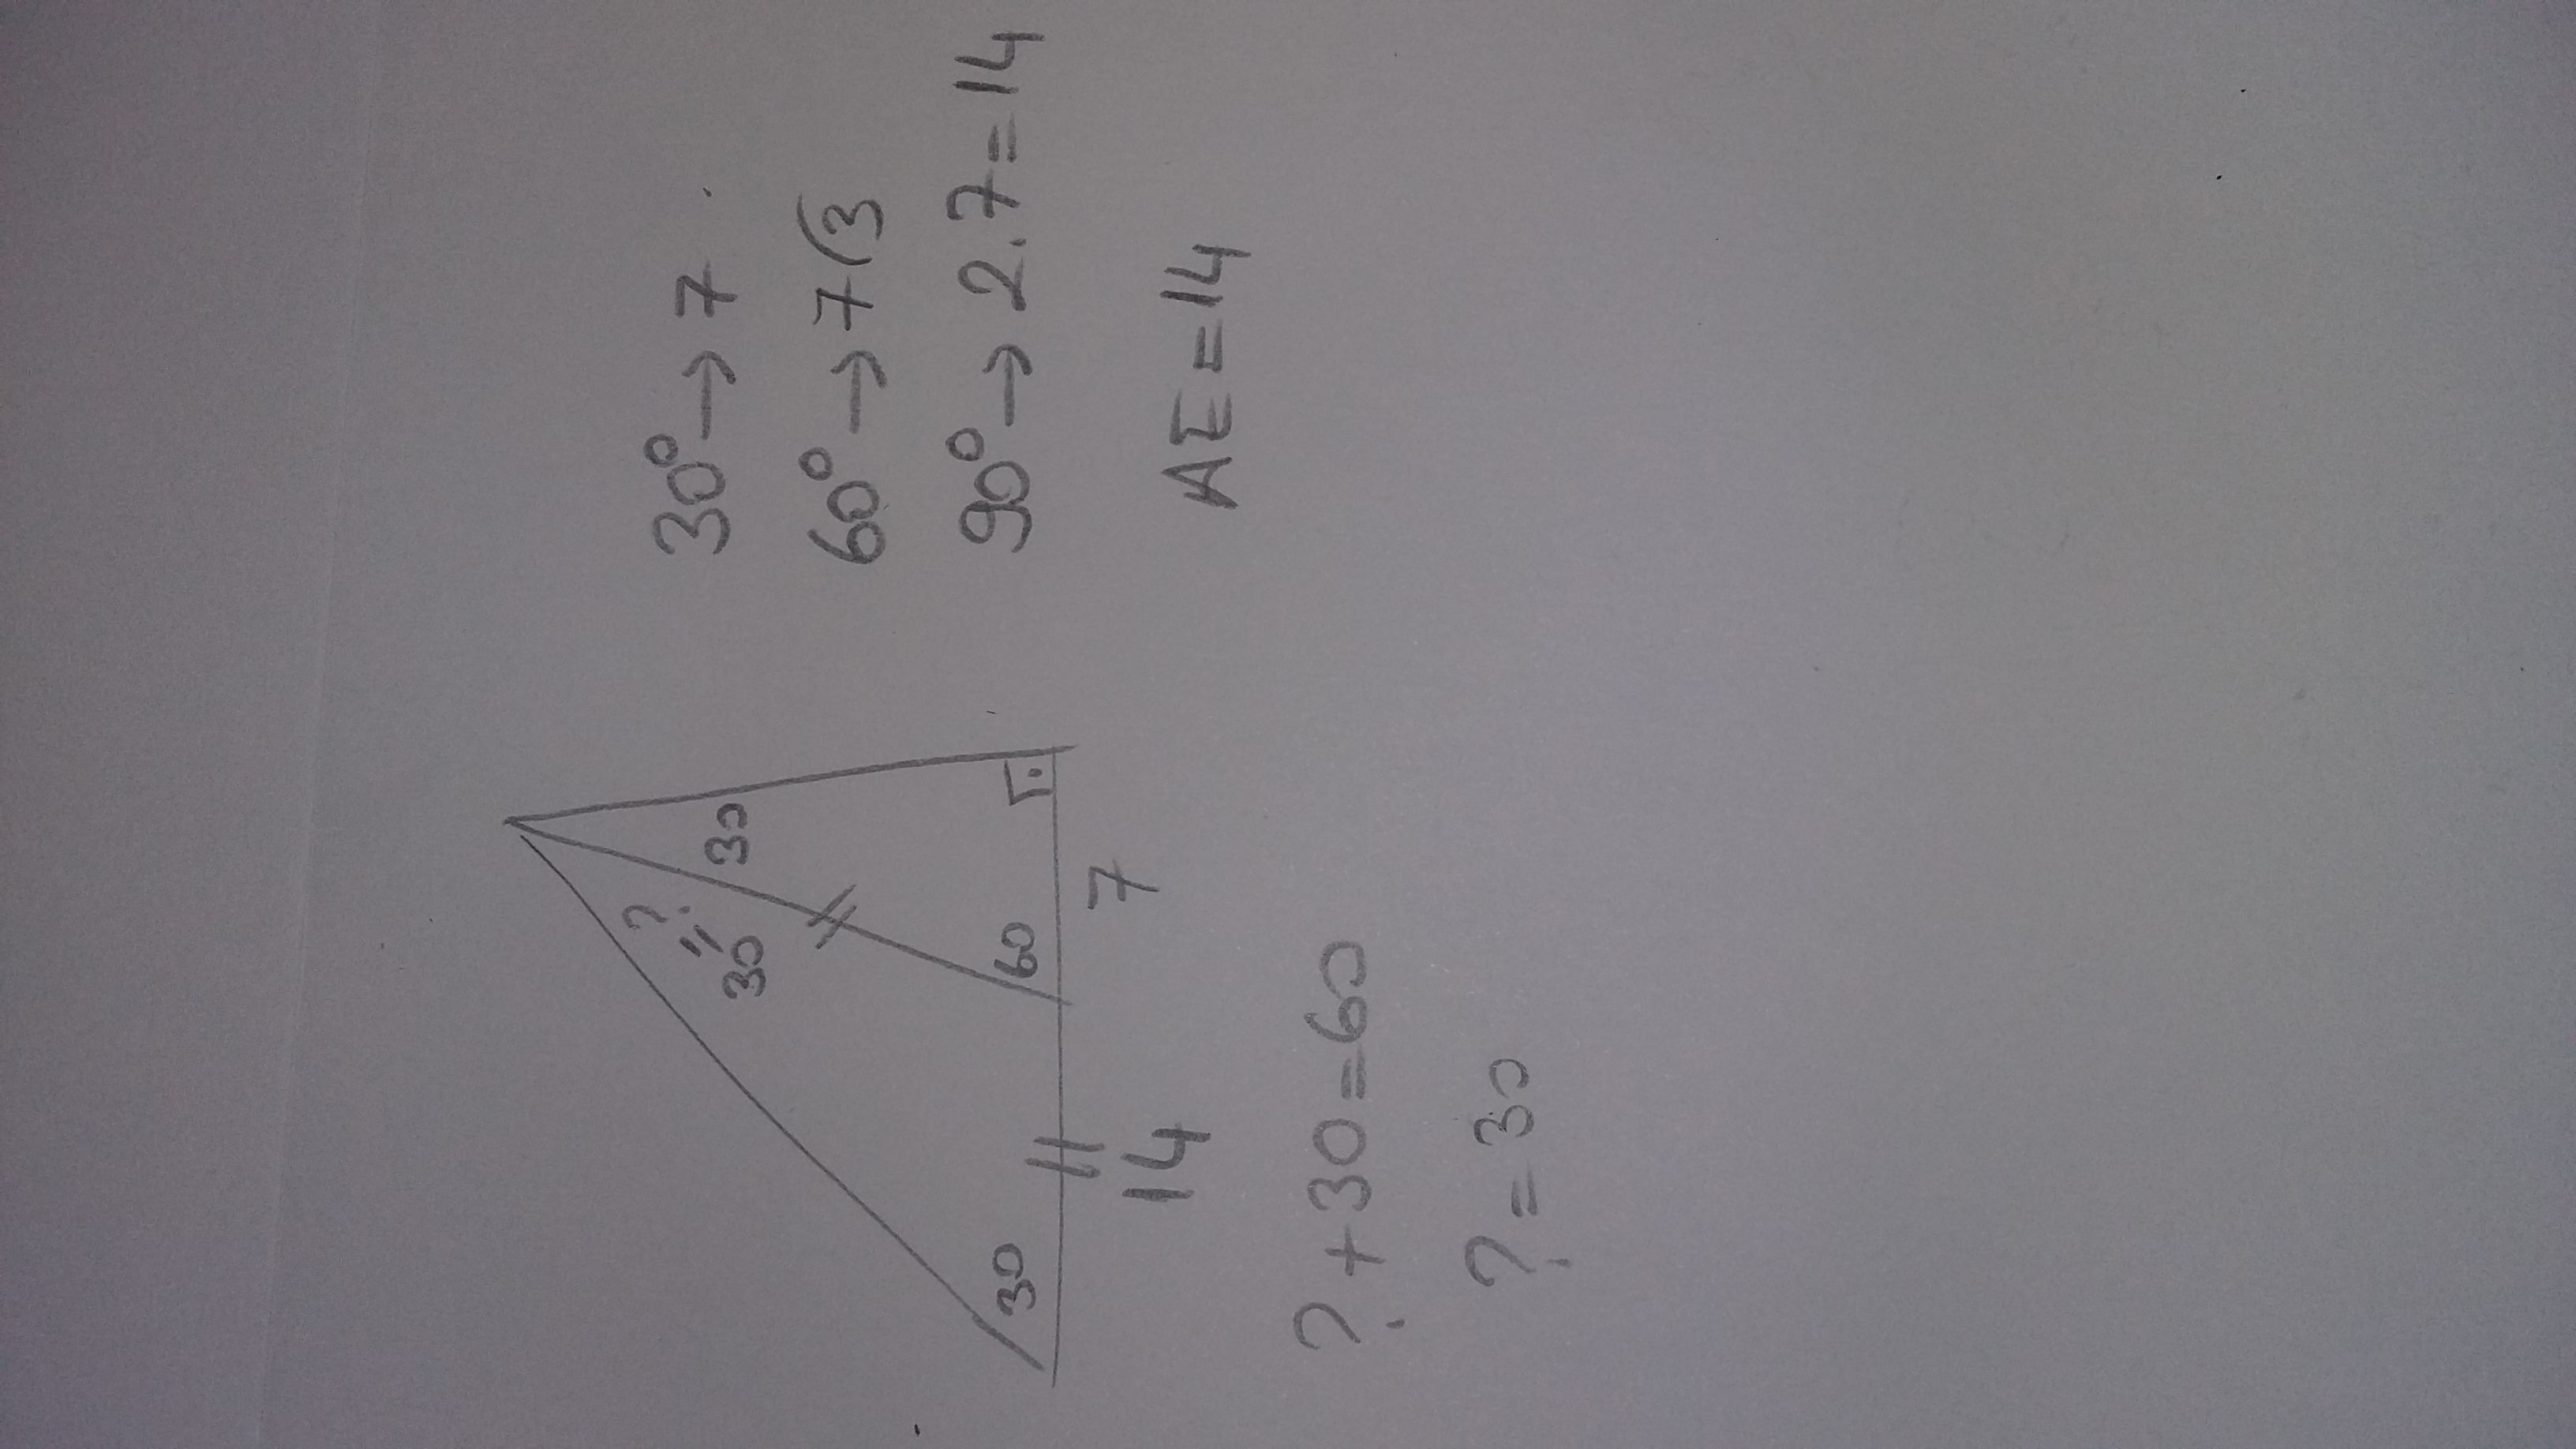 ?
=
30
30
30
60
14
7
? + 30 = 60
? = 30
30° → 7
60° → 7√3
90° → 2.7 = 14
AE = 14